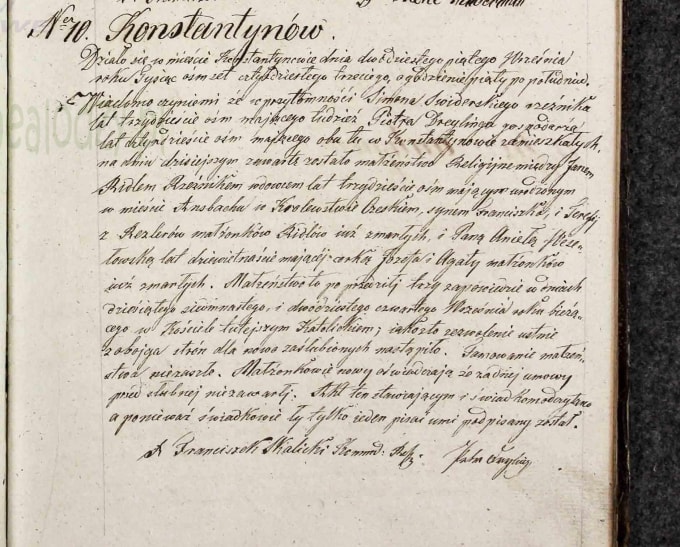 Ner 10. Konstantynów.
Działo się w mieście Konstantynowie dnia dwódziestego piątego Września
roku Tysiąc osm set czterdziestego trzeciego, o godzinie piąty po południu.
Wiadomo czyniemi że w przytomności Simona Swiderskiego rzeznika
lat trzydzieście ośm mającego tudzież Piotra Dreylinga gospodarza
lat czterdzieście ośm mającego oba tu w Konstantynowie zamieszkałych,
na dniu dzisiejszym zawarte zostało małżeństwo Religijne między Janem
Ridlem Rzeźnikem wdowcem lat trzydzieście ośm mającym urodzonym
w mieście Ansbachu w Królewstwie Czeskiem, synem Franciszka, i Teresy
z Rezlerów małżonków Ridlów iuż zmarłych, i Panną Anielą
lat dziewietnaście mającej córką Józefa i Agaty małżonków
iuż zmarłych. Małżeństwo to po przeiściu trzy zapowiedzie w dniach
dziesiątego siemnastego, i dwódziestego czwartego Września roku bieżą-
cego w Kościele tutejszym Katolickiem; iakoteż zezwolenie ustnie
z oboyga strón dla nowo zaślubionych nastąpiło. Tamowanie małżeń-
stwa niezaszło. Małżonkowie nowy oświadczają że żadnej umowy
przed slubnej niezawarli. Akt ten stawiającym i świadkom odczytano
a ponieważ świadkowie ty tylko ieden pisać umi podpisany został.
X Franciszek Skalicki